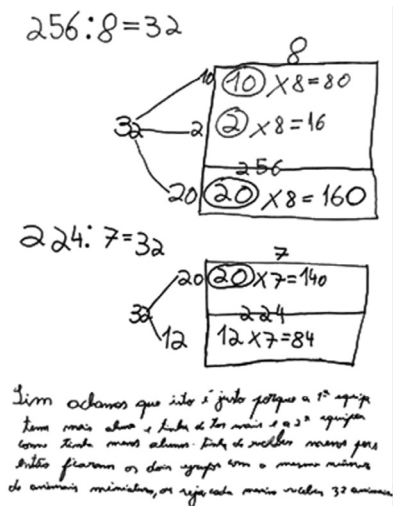 256:8=32
8
10 10 X8=80
32 2 2 x8=16
256
20 20 X8=160
224:7=32
7
20 20 x7=140
32 224
12 12 X7=84
Sim achamos que isto é justo porque a 1ª equipa
tem mais alunos e tinha de ter mais e a 2ª equipa
como tinha menos alunos tinha de receber menos pois
então ficaram os dois grupos com o mesmo número
de animais miniatura, ou seja, cada menino recebeu 32 animais